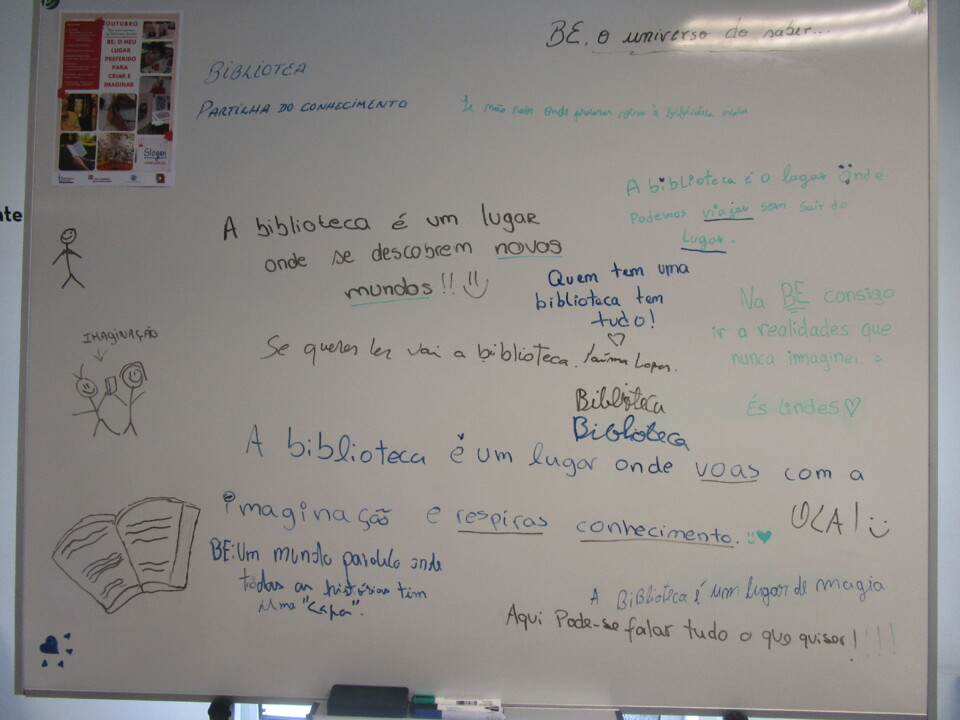 OUTUBRO
BE: O MEU
LUGAR
PREFERIDO
PARA
CRIAR E
IMAGINAR
Slogan
BE, o universo do saber...
BIBLIOTEA
PARTILHA DO CONHECIMENTO
onde à biblioteca
A biblioteca é o lugar onde
Podemos viajar sem sair do
Lugar.
A biblioteca é um lugar
onde se descobrem novos
mundos!!
Quem tem uma
biblioteca tem
tudo!
Na BE consigo
ir a realidades que
nunca imaginei.
IMAGINAÇÃO
Se queres ler vai a biblioteca.
Biblioteca
Biblioteca
És lindes
A biblioteca é um lugar onde voas com a
imaginação e respiras conhecimento.
OLA!
BE: Um mundo paralelo onde
todas as histórias têm
uma "capa".
A BiBlioteca é um lugar de magia
Aqui Pode-se falar tudo o que quiser!!!!